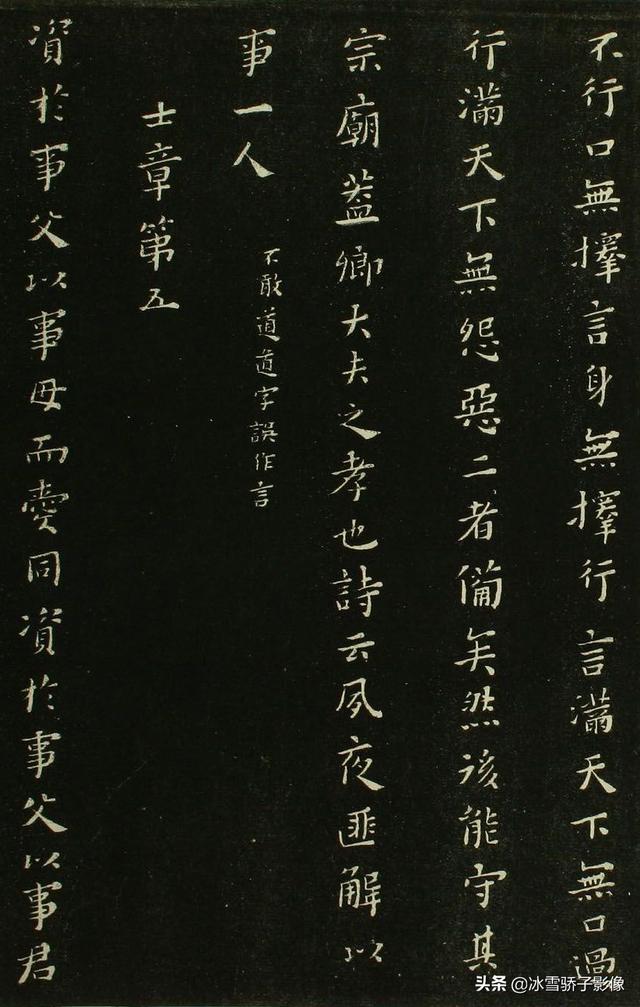 不行口無擇言身無擇行言滿天下無口過
行滿天下無怨惡二者備矣然後能守其
宗廟蓋卿大夫之孝也詩云夙夜匪解以
事一人
不敢道道字誤作言
士章第五
資於事父以事母而愛同資於事父以事君
头条 @冰雪骄子影像